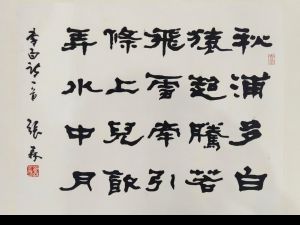 秋浦多白
猿超騰若
飛雪牽引
條上兒飲
弄水中月
李白詩一首 張森